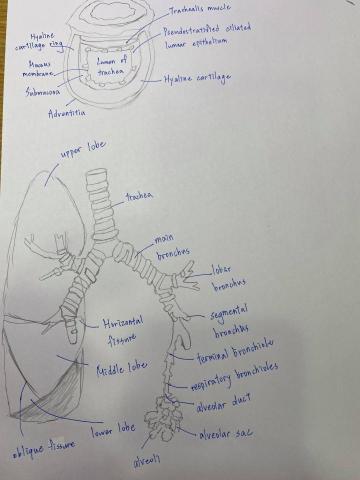 Trachealis muscle
Hyaline
cartilage ring
Pseudostratified ciliated
lumar epithelium
Mucous
membrane
Lumen of
trachea
Submucosa
Hyaline cartilage
Adventitia
upper lobe
trachea
main
bronchus
lobar
bronchus
segmental
bronchus
Horizontal
fissure
terminal bronchiole
Middle lobe
respiratory bronchioles
alveolar duct
lower lobe
alveolar sac
oblique fissure
alveoli